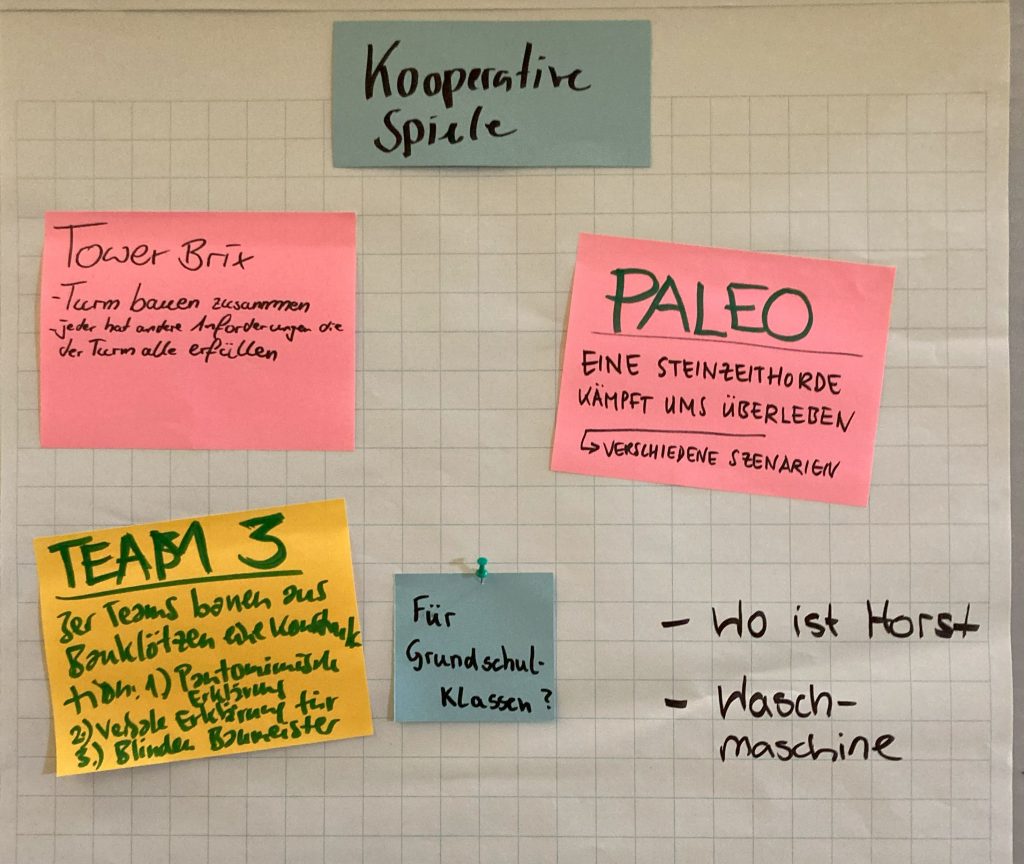 Kooperative
Spiele
Tower Brix
- Turm bauen zusammen
- jeder hat andere Anforderungen die
der Turm alle erfüllen
PALEO
EINE STEINZEITHORDE
KÄMPFT UMS ÜBERLEBEN
↳ VERSCHIEDENE SZENARIEN
TEAM 3
3er Teams bauen aus
Bauklötzen eine Konstruk
tion: 1) Pantomimische
Erklärung
2) Verbale Erklärung für
3.) Blinden Baumeister
Für
Grundschul-
Klassen?
- Wo ist Horst
- Wasch-
maschine